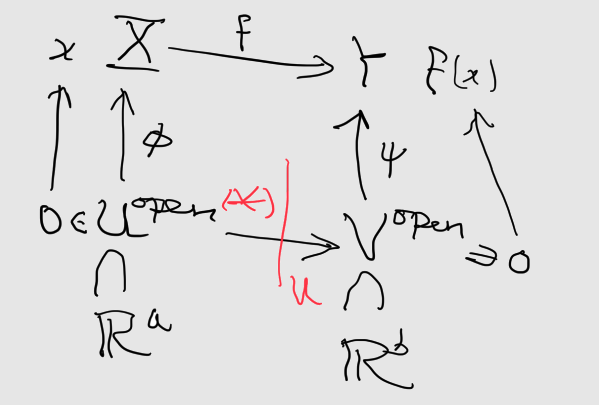 x X f Y f(x)
ϕ ψ
0 ∈ U open (*) V open ∋ 0
∩ u ∩
ℝ^a ℝ^b